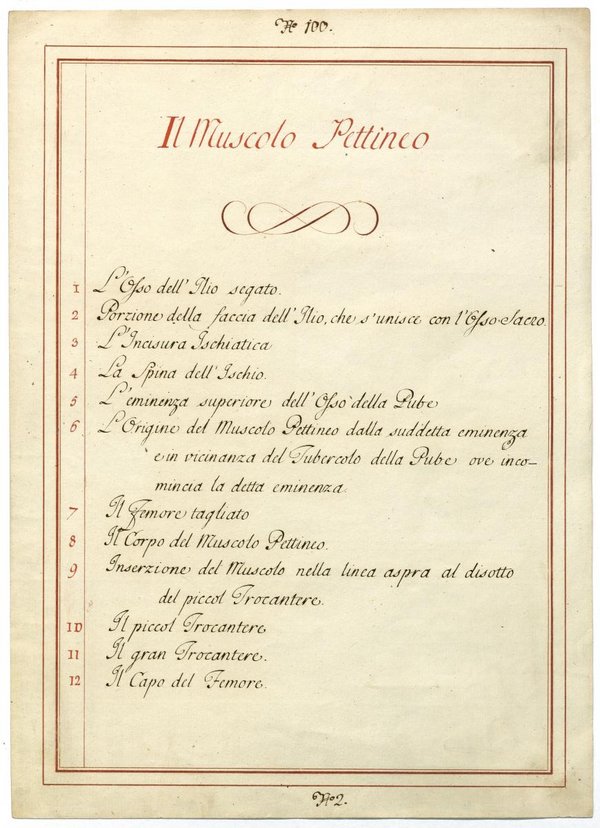 No 100.
Il Muscolo Pettineo
1 L'Osso dell'Ilio segato.
2 Porzione della faccia dell'Ilio, che s'unisce con l'Osso-Sacro.
3 L'Incisura Ischiatica
4 La Spina dell'Ischio.
5 L'eminenza superiore dell'Osso della Pube
6 L'Origine del Muscolo Pettineo dalla suddetta eminenza
e in vicinanza del Tubercolo della Pube ove inco-
mincia la detta eminenza.
7 Il Femore tagliato
8 Il Corpo del Muscolo Pettineo.
9 Inserzione del Muscolo nella linea aspra al disotto
del piccol Trocantere.
10 Il piccol Trocantere
11 Il gran Trocantere.
12 Il Capo del Femore.
No 2.